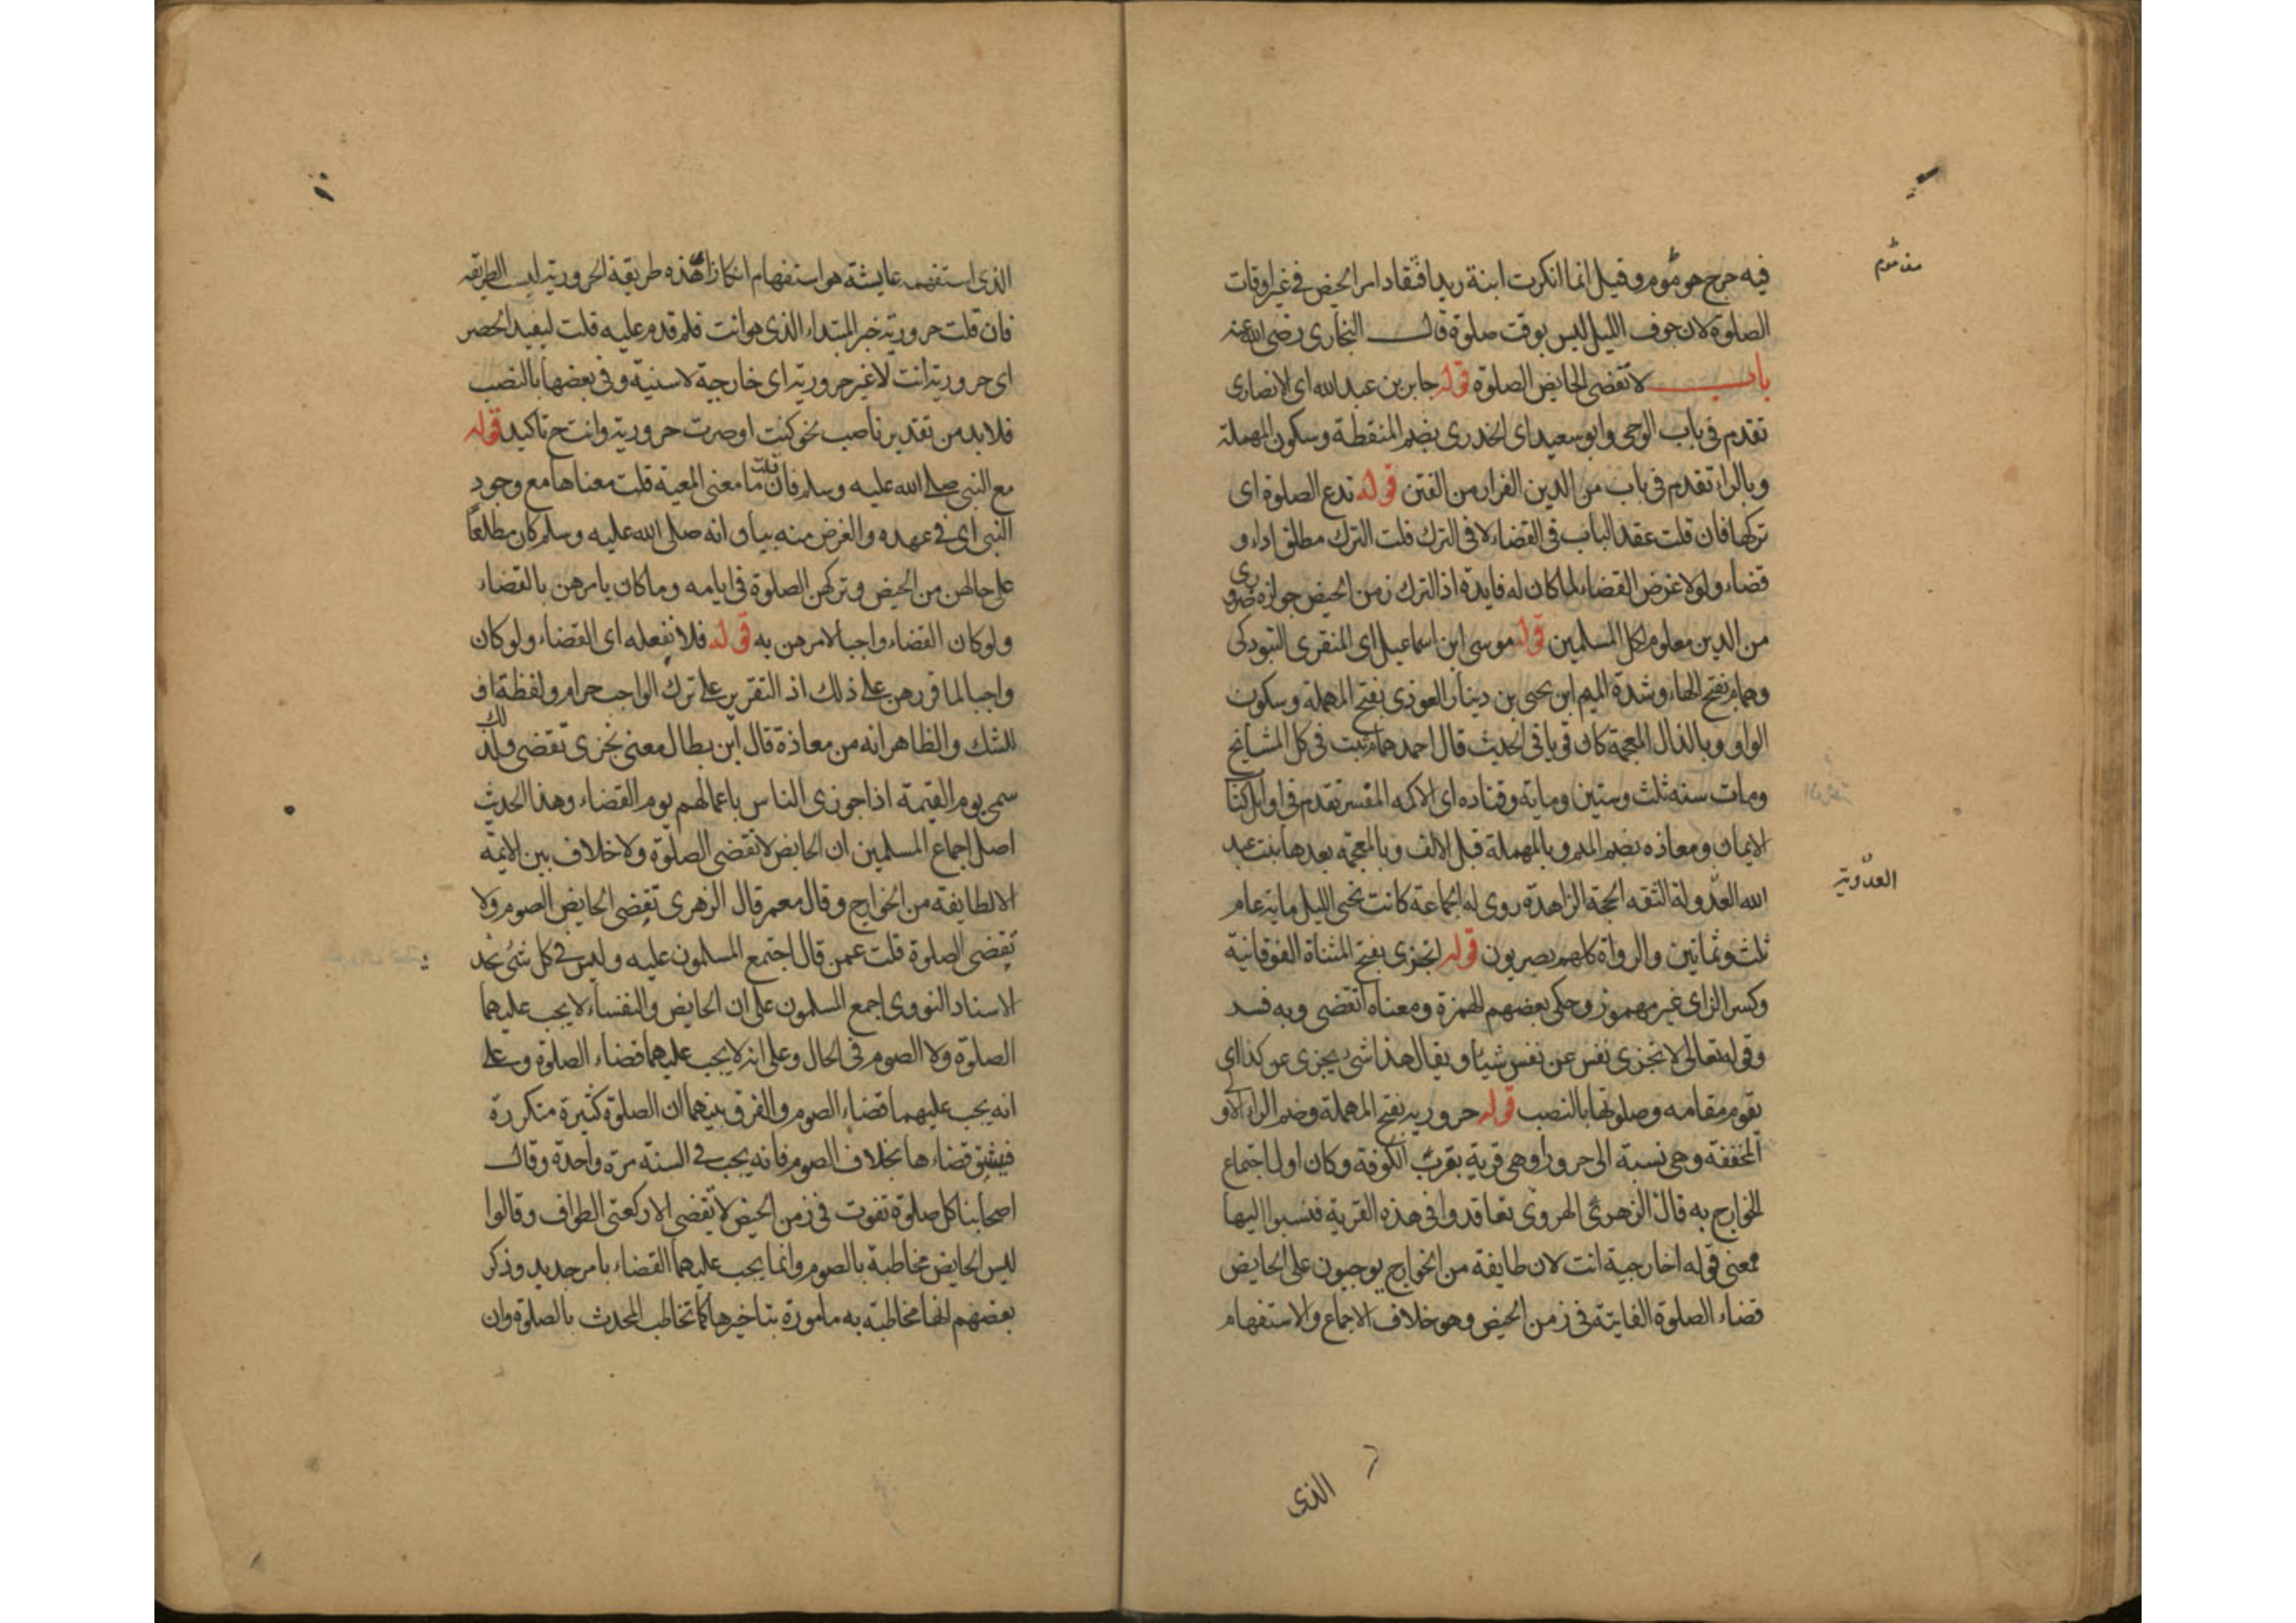 فيه حرج هو مؤموم وقيل انما انكرت ابنة زيد افتقاد امر الحيض في غير اوقات
الصلوة لان جوف الليل ليس بوقت صلوة قال البخارى رضى الله عنه
باب لا تقضى الحايض الصلوة قوله جابر بن عبد الله اى الانصارى
تقدم في باب الوحى وابو سعيد اى الخدرى بضم المنقطة وسكون المهملة
وبالراء تقدم في باب من الدين الفرار من الفتن قوله تدع الصلوة اى
تركها فان قلت عقد الباب في القضاء لا في الترك قلت الترك مطلق اداء و
قضاء ولولا غرض القضاء لما كان له فايدة اذ الترك زمن الحيض جوازه ضرورى
من الدين معلوم لكل المسلمين قوله موسى ابن اسماعيل اى المنقرى التبوذكى
وهمام بفتح الهاء وشدة الميم ابن يحيى بن دينار العوذى بفتح المهملة وسكون
الواو وبالذال المعجمة كان في باقى الحديث قال احمد همام ثبت في كل المشايخ
ومات سنه ثلث وستين وماية وقتاده اى الاكمه المفسر تقدم في اوايل كتا
الايمان ومعاذه بضم الميم وبالمهملة قبل الالف وبالمعجمه بعدها بنت عبد
الله العدولة الثقه الحجة الزاهدة روى له الجماعة كانت تحيى الليل ماتت عام
ثلث وثمانين والرواة كلهم بصريون قوله اتجزى بفتح المثناة الفوقانية
وكسر الزاى غير مهموز وحكى بعضهم الهمزة ومعناه اتقضى وبه فسد
وقوله تعالى لا تجزى نفس عن نفس شيئا ويقال هذا شىء يجزى عن كذا اى
يقوم مقامه وصلوتها بالنصب قوله حروريه بفتح المهملة وضم الراء الاو
المخففة وهى نسبة الى حرورا وهى قرية بقرب الكوفة وكان اول اجتماع
الخوارج به قال الزهرى الهروى تعاقدوا في هذه القرية فنسبوا اليها
فمعنى قوله اخارجية انت لان طايفة من الخوارج يوجبون على الحايض
قضاء الصلوة الفايتة في زمن الحيض وهو خلاف الاجماع والاستفهام
العدوية
الذى
الذى استفهمت عايشة هو استفهام انكار اى هذه طريقة الحرورية ليس الطريقة
فان قلت حرورية خبر المبتداء الذى هو انت فلم قدم عليه قلت ليفيد الحصر
اى حرورية انت لا غير حرورية اى خارجية لا سنية وفى بعضها بالنصب
فلا بد من تقدير ناصب نحو كنت او صرت حرورية وانت ح تاكيد قوله
مع النبى صلى الله عليه وسلم فان قلت ما معنى المعية قلت معناها مع وجود
النبى اى في عهده والغرض منه بيان انه صلى الله عليه وسلم كان مطلعا
على حالهن من الحيض وتركهن الصلوة في ايامه وما كان يامرهن بالقضاء
ولو كان القضاء واجبا لامرهن به قوله فلا نفعله اى القضاء ولو كان
واجبا لما قررهن على ذلك اذ التقرير على ترك الواجب حرام ولفظة او
للشك والظاهر انه من معاذة قال ابن بطال معنى تجزى تقضى ولذلك
سمى يوم القيمة اذا جوزى الناس باعمالهم يوم القضاء وهذا الحديث
اصل اجماع المسلمين ان الحايض لا تقضى الصلوة ولا خلاف بين الايمة
الا لطايفة من الخوارج وقال معمر قال الزهرى تقضى الحايض الصوم ولا
تقضى الصلوة قلت عمن قال اجتمع المسلمون عليه وليس في كل شئ نجد
الاسناد النووى اجمع المسلمون على ان الحايض والنفساء لا يجب عليهما
الصلوة ولا الصوم في الحال وعلى انه لا يجب عليهما قضاء الصلوة وعلى
انه يجب عليهما قضاء الصوم والفرق بينهما ان الصلوة كثيرة متكررة
فيشق قضاءها بخلاف الصوم فانه يجب في السنة مرة واحدة وقال
اصحابنا كل صلوة تفوت في زمن الحيض لا تقضى الا ركعتى الطواف وقالوا
ليس الحايض مخاطبة بالصوم وانما يجب عليهما القضاء بامر جديد وذكر
بعضهم انها مخاطبة به مامورة بتاخيرها كما تخاطب المحدث بالصلوة وان